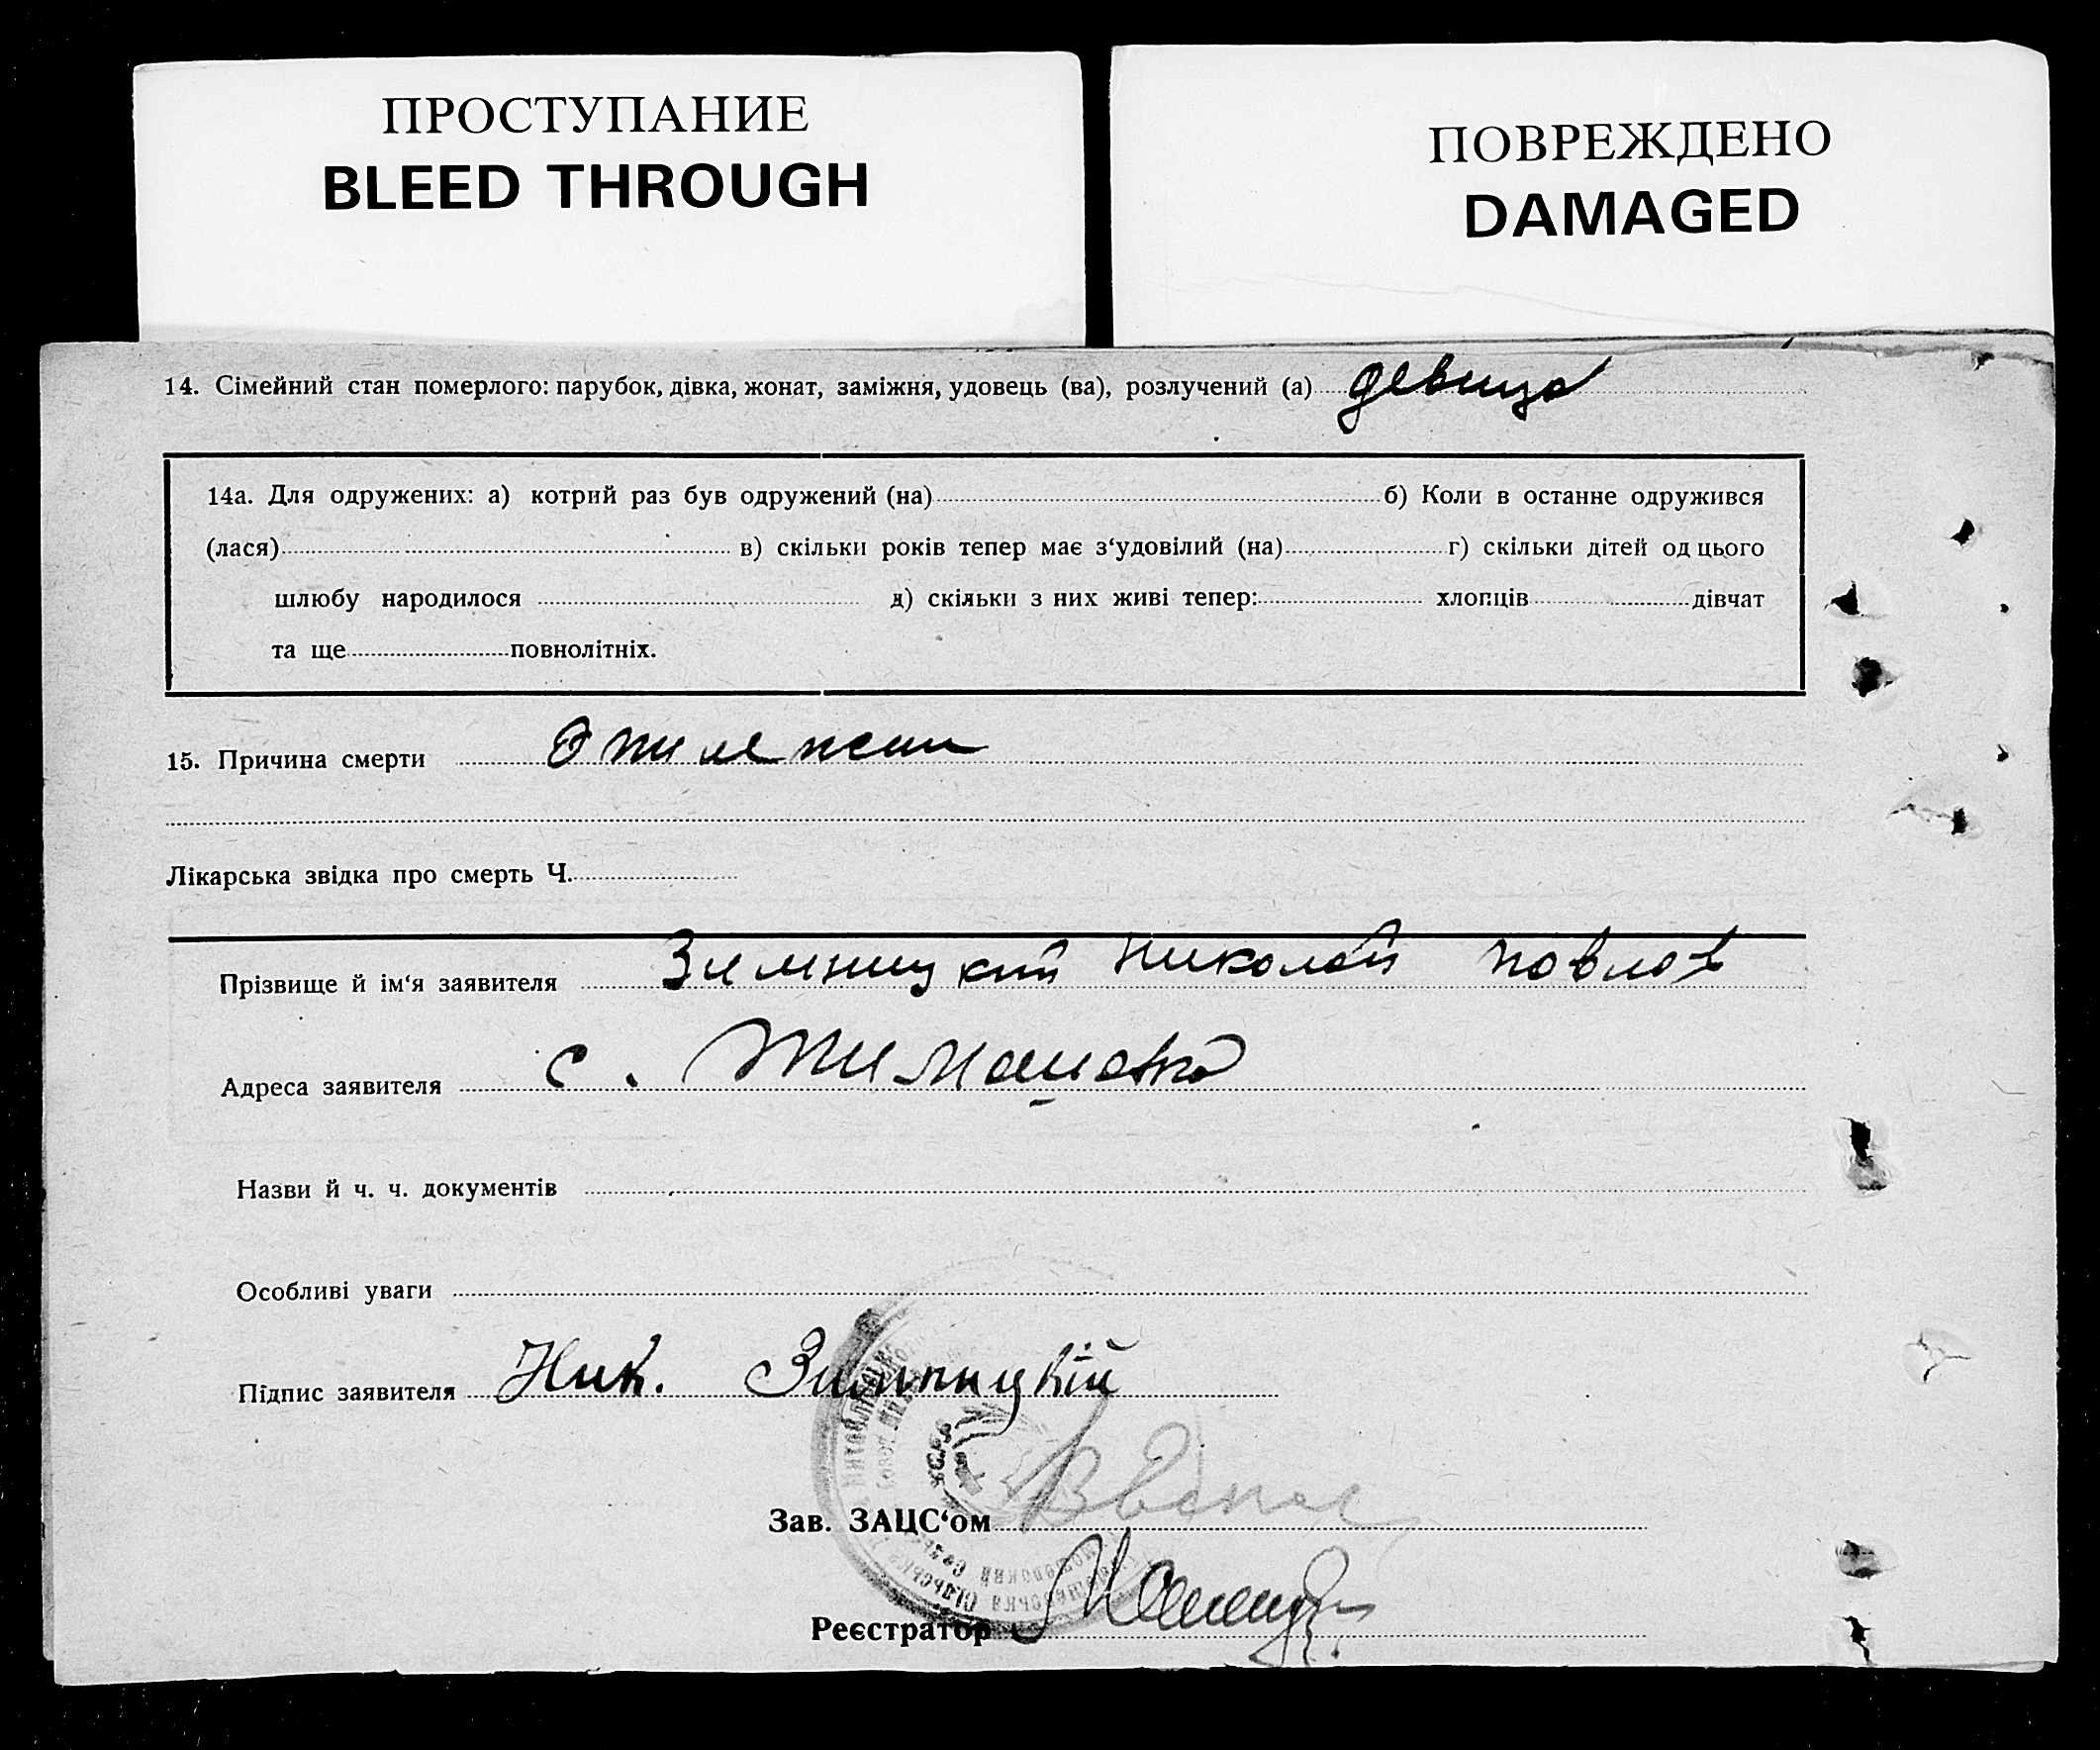 ПРОСТУПАНИЕ
BLEED THROUGH
ПОВРЕЖДЕНО
DAMAGED
14. Сімейний стан померлого: парубок, дівка, жонат, заміжня, удовець (ва), розлучений (а) девица
14а. Для одружених: а) котрий раз був одружений (на) б) Коли в останне одружився
(лася) в) скільки років тепер має з‘удовілий (на) г) скільки дітей од цього
шлюбу народилося д) скільки з них живі тепер: хлопців дівчат
та ще повнолітніх.
15. Причина смерти
Лікарська звідка про смерть Ч.
Прізвище й ім‘я заявителя Зимницкий Николай Повлов
Адреса заявителя с. Тимашовка
Назви й ч. ч. документів
Особливі уваги
Підпис заявителя Ник. Зимницкій
Зав. ЗАЦС‘ом
Реєстратор